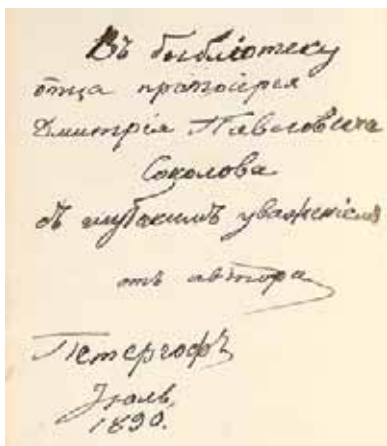 Въ библіотеку
отца протоіерея
Дмитрія Павловича
Соколова
съ глубокимъ уваженіемъ
отъ автора
Петергофъ
Іюль
1890.